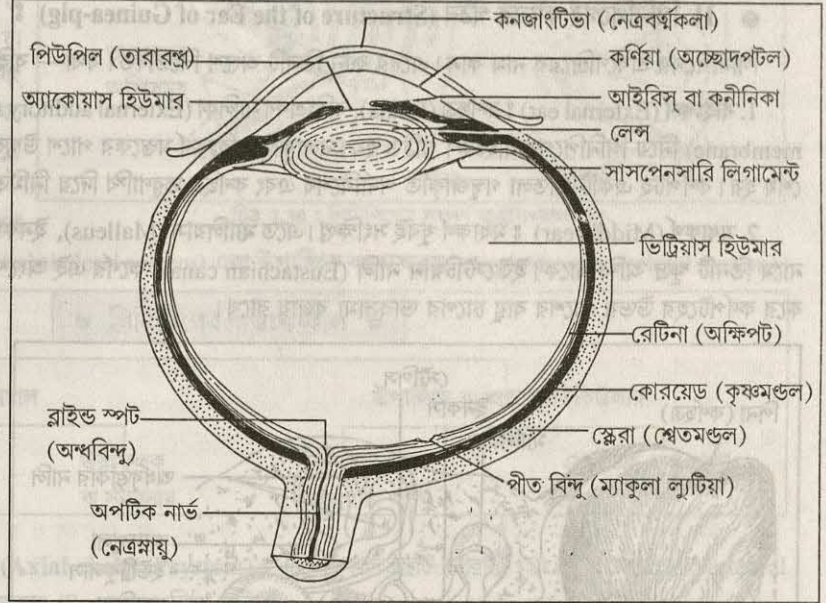 কনজাংটিভা (নেত্রবর্ত্মকলা)
পিউপিল (তারারন্ধ্র)
কর্ণিয়া (অচ্ছোদপটল)
অ্যাকোয়াস হিউমার
আইরিস্ বা কনীনিকা
লেন্স
সাসপেনসারি লিগামেন্ট
ভিট্রিয়াস হিউমার
রেটিনা (অক্ষিপট)
কোরয়েড (কৃষ্ণমণ্ডল)
ব্লাইন্ড স্পট
(অন্ধবিন্দু)
স্ক্লেরা (শ্বেতমণ্ডল)
পীত বিন্দু (ম্যাকুলা ল্যুটিয়া)
অপটিক নার্ভ
(নেত্রস্নায়ু)